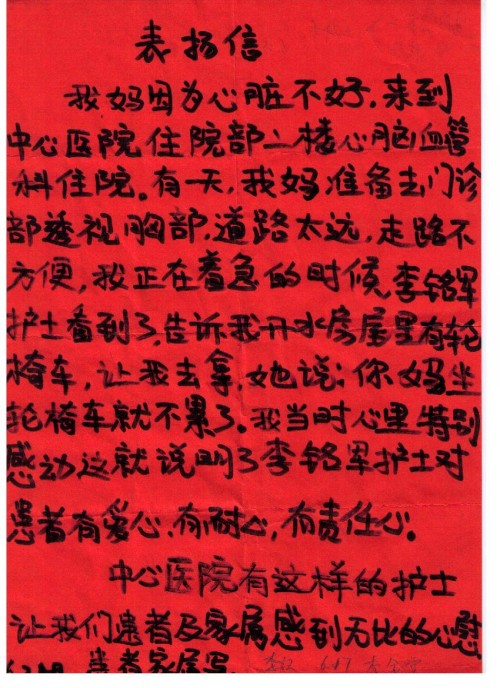 表扬信
我妈因为心脏不好,来到
中心医院住院部二楼心脑血管
科住院。有一天,我妈准备去门诊
部透视胸部,道路太远,走路不
方便,我正在着急的时候,李铭军
护士看到了,告诉我开水房屋里有轮
椅车,让我去拿,她说:你妈坐
轮椅车就不累了。我当时心里特别
感动这就说明了李铭军护士对
患者有爱心,有耐心,有责任心。
中心医院有这样的护士
让我们患者及家属感到无比的心慰
患者家属写